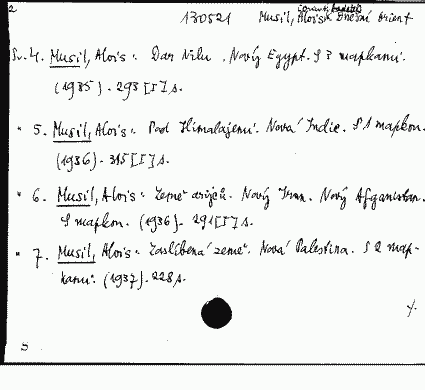 2
130521 Musil, Alois: Dnešní Orient
Sv. 4. Musil, Alois: Dar Nilu. Nový Egypt. S 3 mapkami.
(1935). 293 [I] s.
" 5. Musil, Alois: Pod Himalajemi. Nová Indie. S 1 mapkou.
(1936). 315 [I] s.
" 6. Musil, Alois: Země arijců. Nový Iran. Nový Afganistan.
S mapkou. (1936). 291 [I] s.
" 7. Musil, Alois: Zaslíbená země. Nová Palestina. S 2 map-
kami. (1937). 228 s.
S